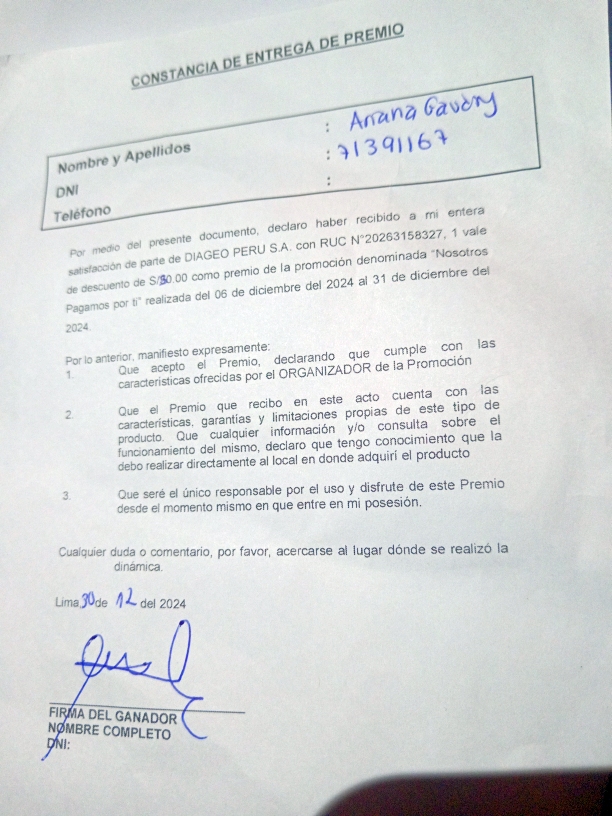 CONSTANCIA DE ENTREGA DE PREMIO
Nombre y Apellidos : Ariana Gavery
DNI : 71391167
Teléfono :
Por medio del presente documento, declaro haber recibido a mi entera
satisfacción de parte de DIAGEO PERU S.A. con RUC N°20263158327, 1 vale
de descuento de S/30.00 como premio de la promoción denominada "Nosotros
Pagamos por ti" realizada del 06 de diciembre del 2024 al 31 de diciembre del
2024.
Por lo anterior, manifiesto expresamente:
1. Que acepto el Premio, declarando que cumple con las
características ofrecidas por el ORGANIZADOR de la Promoción
2. Que el Premio que recibo en este acto cuenta con las
características, garantías y limitaciones propias de este tipo de
producto. Que cualquier información y/o consulta sobre el
funcionamiento del mismo, declaro que tengo conocimiento que la
debo realizar directamente al local en donde adquirí el producto
3. Que seré el único responsable por el uso y disfrute de este Premio
desde el momento mismo en que entre en mi posesión.
Cualquier duda o comentario, por favor, acercarse al lugar dónde se realizó la
dinámica.
Lima, 30 de 12 del 2024
FIRMA DEL GANADOR
NOMBRE COMPLETO
DNI: